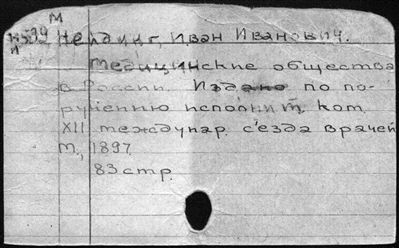 М
Нейдинг, Иван Иванович.
Медицинские общества
в России. Издано по по-
ручению исполнит. ком.
XII междунар. съезда врачей
М., 1897.
83 стр.